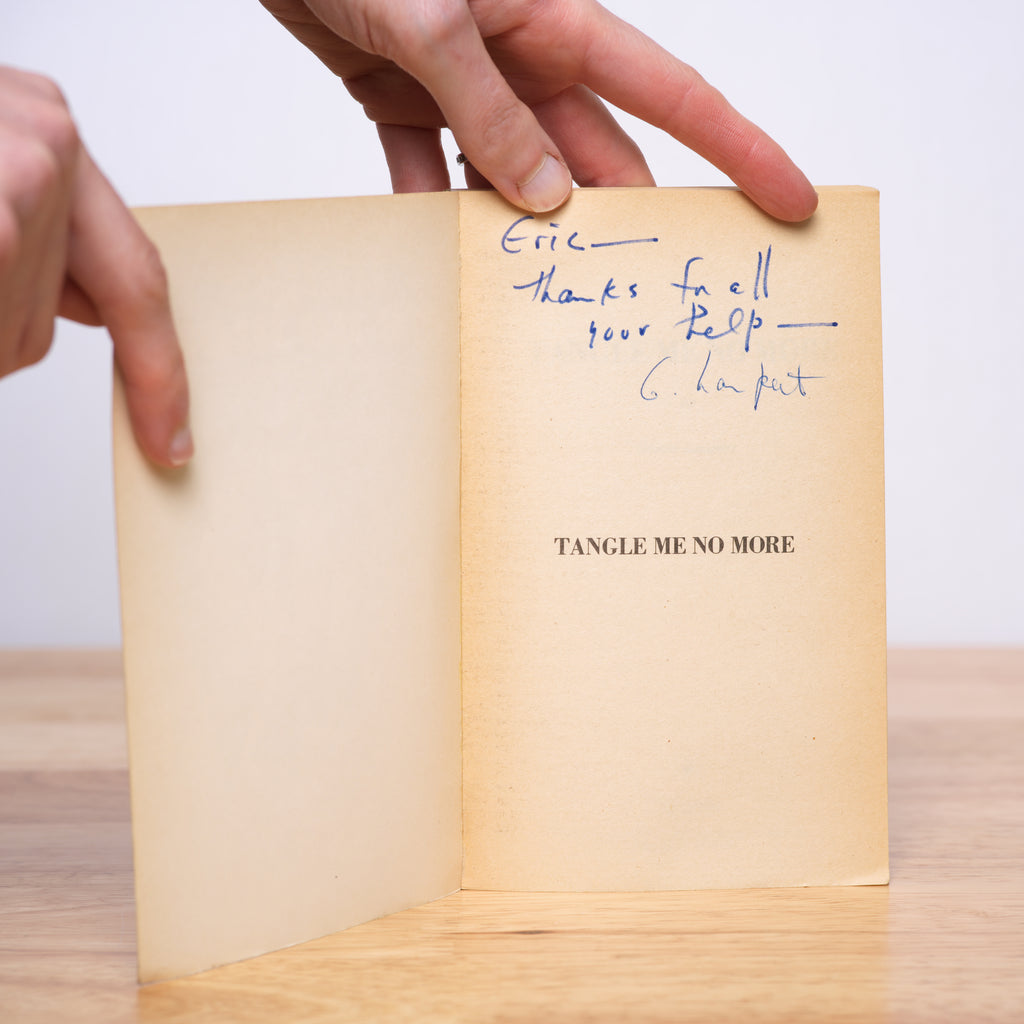 Eric —
Thanks for all
your help —
G. Lampert
TANGLE ME NO MORE